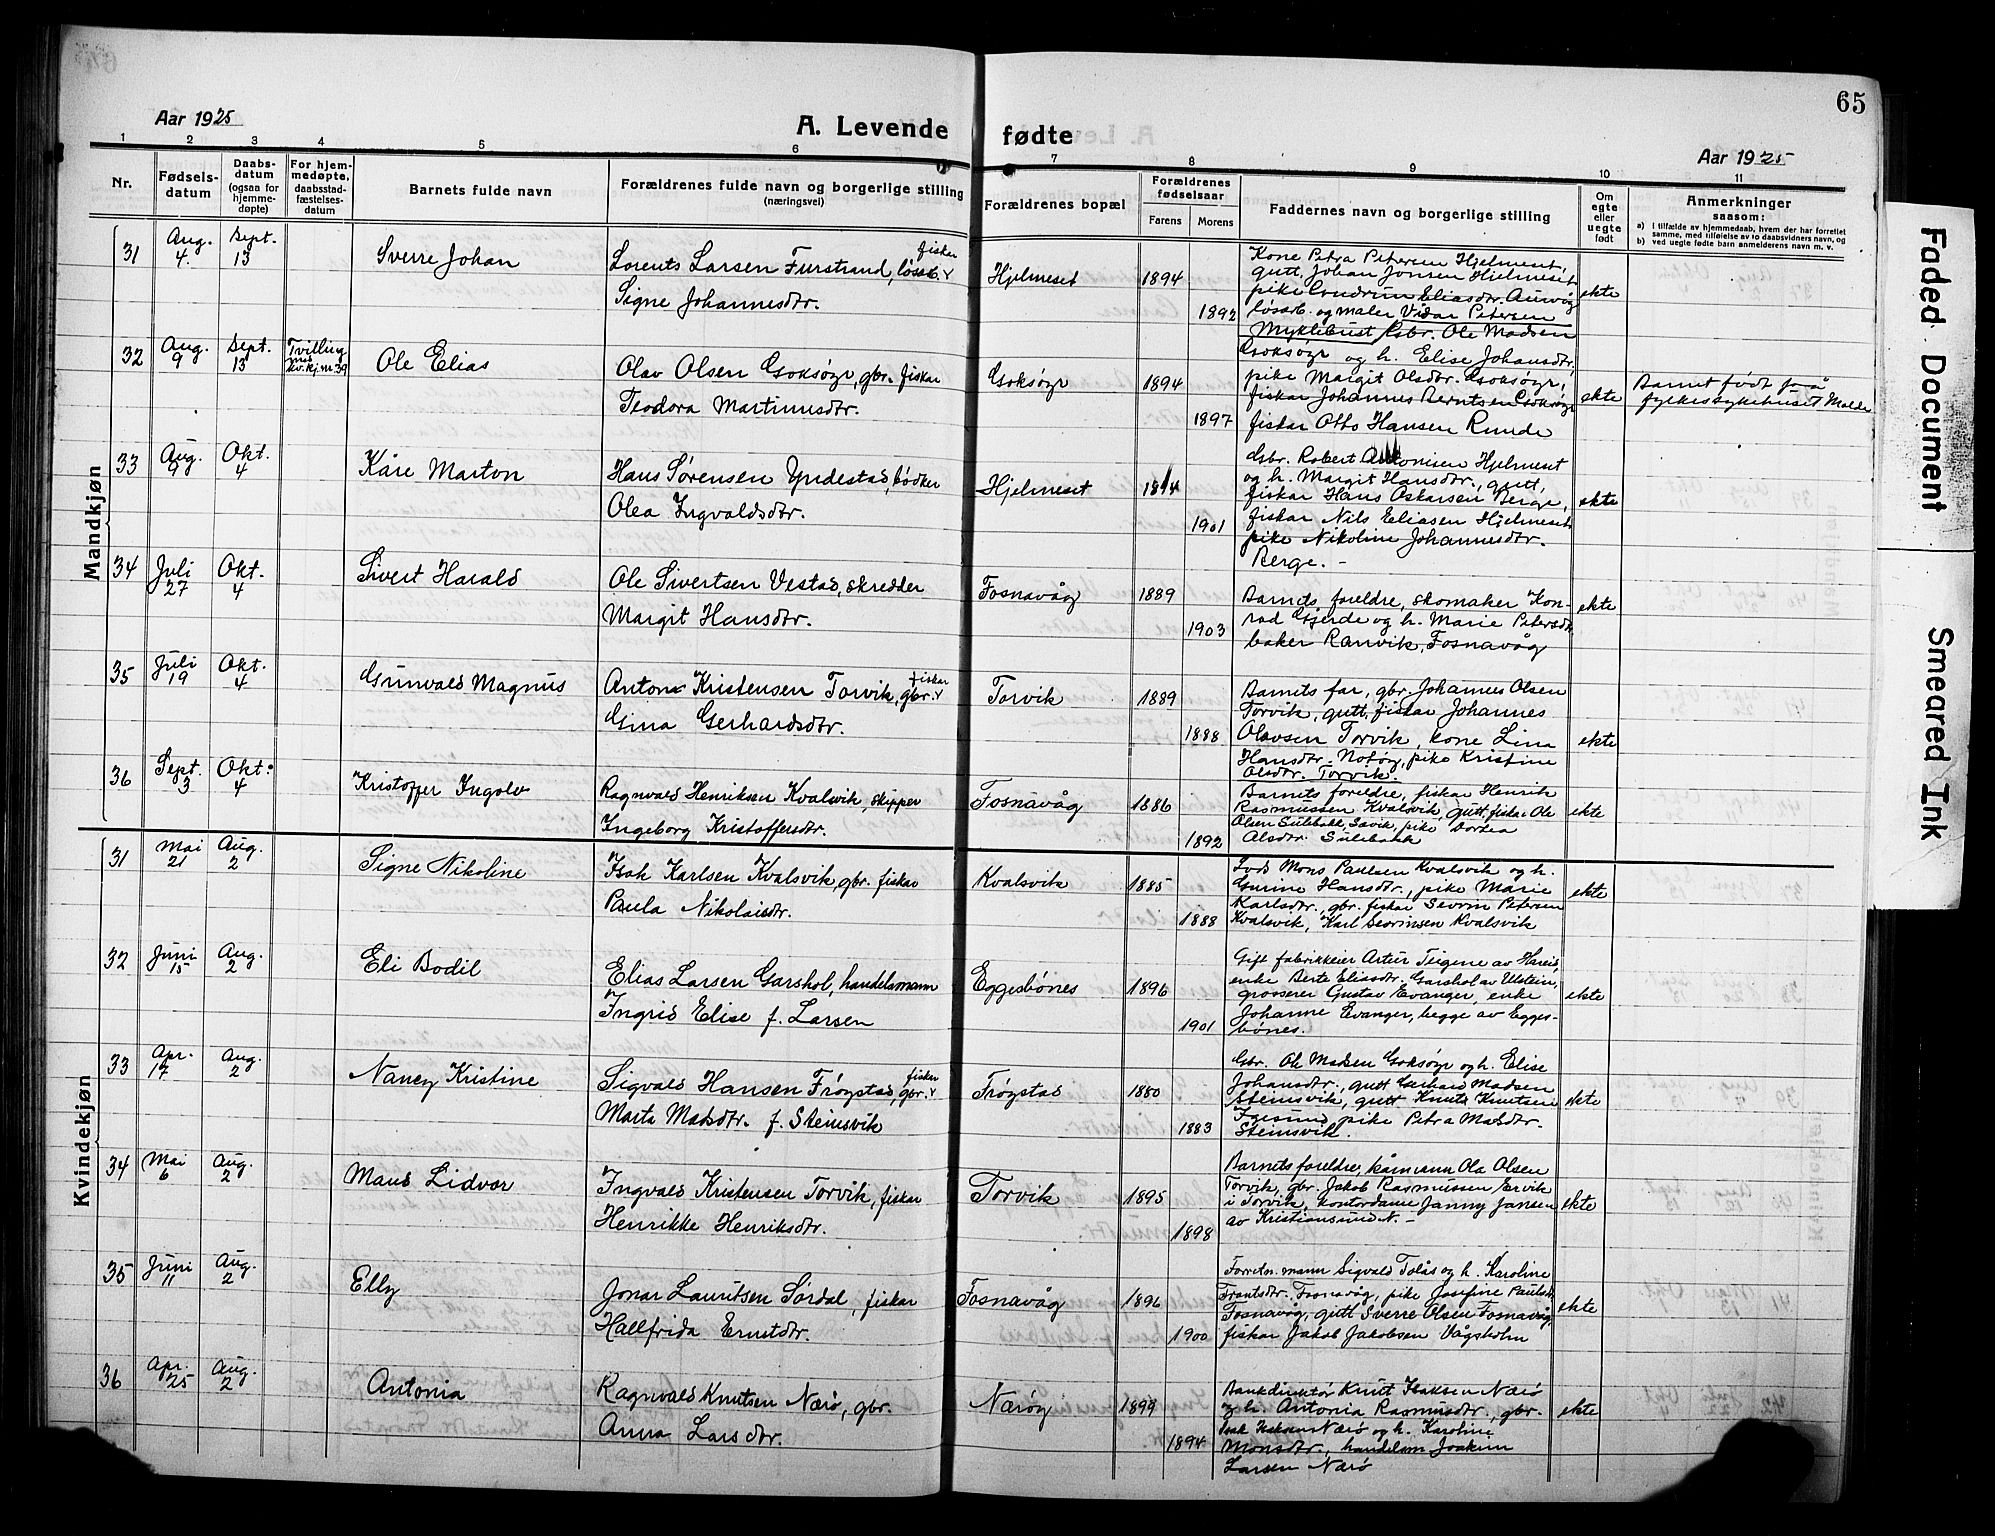 65
Aar 1925
A. Levende fødte
Aar 1925
1 2 3 4 5 6 7 8 9 10 11
Nr.
Fødsels-
datum
Daabs-
datum
(ogsaa for
hjemme-
døpte)
For hjem-
medøpte,
daabsstad-
fæstelses-
datum
Barnets fulde navn
Forældrenes fulde navn og borgerlige stilling
(næringsvei)
Forældrenes bopæl
Forældrenes
fødselsaar
Farens Morens
Faddernes navn og borgerlige stilling
Om
egte
eller
uegte
født
Anmerkninger
saasom:
a) I tilfælde av hjemmedaab, hvem der har forrettet
samme, med tilføielse av to daabsvidners navn, og
b) ved uegte fødte barn anmelderens navn m. v.
Mandkjøn
31 Aug. 4. Sept. 13 Sverre Johan
Lorents Larsen Furstrand, løsarb. fiskar
Signe Johannesdtr.
Hjelmeset 1894 1892
Kone Petra Petersen Hjelmeset,
gutt, Johan Jonsen Hjelmeset
pike Gudrun Eliasdtr. Aurvåg
løsarb. og maler Vidar Petersen
Myklebust
ekte
32 Aug. 9 Sept. 13 Tvilling med kv.kj. nr 39 Ole Elias
Olav Olsen Goksøyr, gbr. fiskar
Teodora Martinusdtr.
Goksøyr 1894 1897
Gbr. Ole Madsen
Goksøyr og h. Elise Johansdtr,
pike Margit Olsdtr. Goksøyr,
fiskar Johannes Berntsen Goksøyr
fiskar Otto Hansen Runde
ekte
Barnet født på
fylkessykehuset Molde
33 Aug. 9 Okt. 4 Kåre Marton
Hans Sørensen Yndestad, bødker
Olea Ingvaldsdtr.
Hjelmeset 1894 1901
Gbr. Robert Antonisen Hjelmeset
og h. Margit Hansdtr., gutt,
fiskar Hans Oskarsen Berge,
fiskar Nils Eliasen Hjelmeset
pike Nikoline Johannesdtr.
Berge. -
ekte
34 Juli 27 Okt. 4 Sivert Harald
Ole Sivertsen Vestad, skredder
Margit Hansdtr.
Fosnavåg 1889 1903
Barnets foreldre, skomaker Kon-
rad Gjerde og h. Marie Petersdtr.
baker Ranvik, Fosnavåg
ekte
35 Juli 19 Okt. 4 Gunvald Magnus
Anton Kristensen Torvik, gbr. fiskar
Gina Gerhardsdtr.
Torvik 1889 1888
Barnets far, gbr. Johannes Olsen
Torvik, gutt, fiskar Johannes
Olavsen Torvik, kone Lina
Hansdtr. Notøy, pike Kristine
Olsdtr. Torvik.
ekte
36 Sept. 3 Okt. 4 Kristoffer Ingolv
Ragnvald Henriksen Kvalsvik, skipper
Ingeborg Kristoffersdtr.
Fosnavåg 1886 1892
Barnets foreldre, fiskar Henrik
Rasmussen Kvalsvik, gutt, fiskar Ole
Olsen Sulebakk, Savik, pike Dortea
Olsdtr. Sulebakk
ekte
Kvindekjøn
31 Mai 21 Aug. 2 Signe Nikoline
Isak Karlsen Kvalsvik, gbr. fiskar
Paula Nikolaisdtr.
Kvalsvik 1885 1888
Lods Mons Paulsen Kvalsvik og h.
Gurine Hansdtr., pike Marie
Karlsdtr., gbr. fiskar Severin Petersen
Kvalsvik, Karl Severinsen Kvalsvik
ekte
32 Juni 15 Aug. 2 Eli Bodil
Elias Larsen Garshol, handelsmann
Ingrid Elise f. Larsen
Eggesbönes 1896 1901
Gift fabrikkeier Artur Teigene av Hareid,
enke Berte Eliasdtr. Garshol av Ulstein,
grosserer Gustav Evanger, enke
Johanne Evanger, begge av Egges-
bönes.
ekte
33 Apr. 17 Aug. 2 Nancy Kristine
Sigvald Hansen Frøystad, gbr. fiskar
Marta Madsdtr. f. Steinsvik
Frøystad 1880 1883
Gbr. Ole Madsen Goksøyr og h. Elise
Johansdtr., gutt Gerhard Madsen
Steinsvik, gutt Knut Knutsen
Igesund, pike Petra Madsdtr.
Steinsvik.
ekte
34 Mai 6 Aug. 2 Maud Lidvar
Ingvald Kristensen Torvik, fiskar
Henrikke Henriksdtr.
Torvik 1895 1898
Barnets foreldre, kårmann Ole Olsen
Torvik, gbr. Jakob Rasmussen Ervik
i Torvik, kontordame Janny Jansen
av Kristiansund N. -
ekte
35 Juni 11 Aug. 2 Elly
Jonar Lauritsen Sördal, fiskar
Hallfrida Ernstdtr.
Fosnavåg 1896 1900
Forretn. mann Sigvald Tolås og h. Karoline
Frantsdtr. Fosnavåg, pike Josefine Paulsdtr.
Fosnavåg, gutt Sverre Olsen Fosnavåg,
fiskar Jakob Jakobsen Vågsholm
ekte
36 Apr. 25 Aug. 2 Antonia
Ragnvald Knutsen Nærø, gbr.
Anna Larsdtr.
Nærøy 1899 1894
Bankdirektör Knut Isaksen Nærö
og h. Antonia Rasmusdtr., gbr.
Isak Isaksen Nærö og h. Karoline
Monsdtr., handelsm Joakim
Larsen Nærö
ekte
Faded Document
Smeared Ink